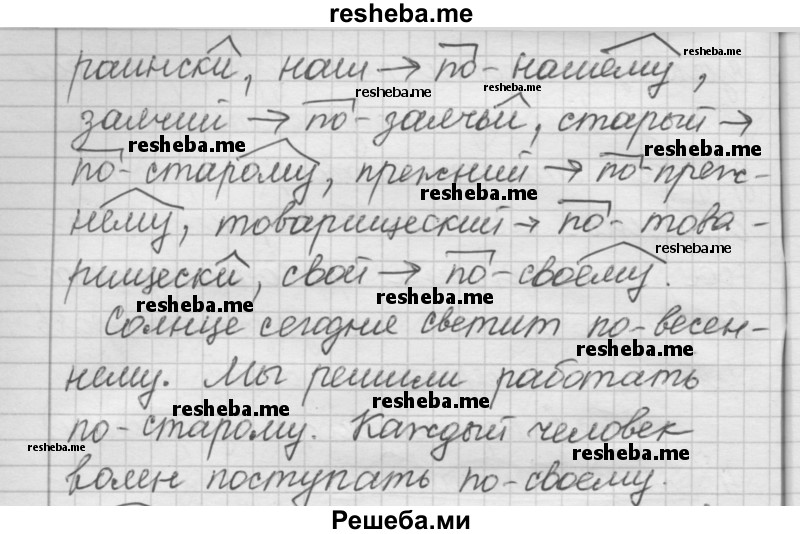 resheba.me
раински, наш → по-нашему,
resheba.me
resheba.me
заячий → по-заячьи, старый →
resheba.me
resheba.me
по-старому, прежний → по-преж-
resheba.me
нему, товарищеский → по-това-
resheba.me
рищески, свой → по-своему.
resheba.me
resheba.me
Солнце сегодня светит по-весен-
resheba.me
нему. Мы решили работать
resheba.me
resheba.me
по-старому. Каждый человек
resheba.me
resheba.me
волен поступать по-своему.
Решеба.ми